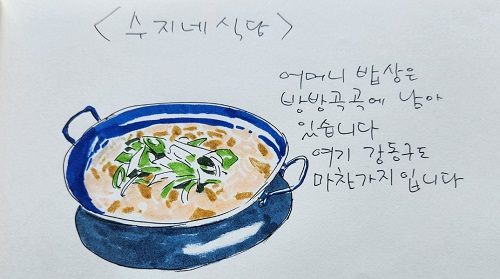 <수지네 식당>
어머니 밥상은
방방곡곡에 남아
있습니다
여기 강동구도
마찬가지입니다